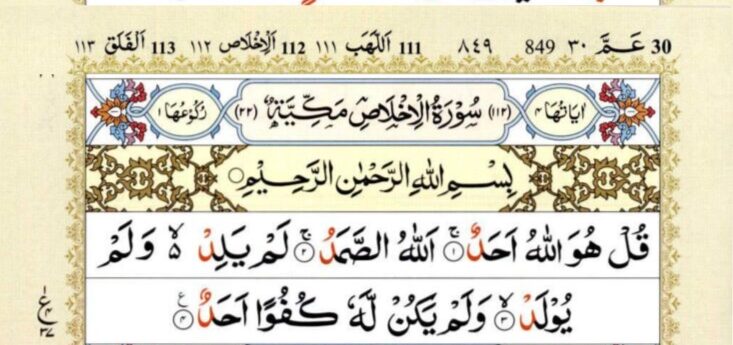 30 عَمَّ ٣٠ 849 ٨٤٩ 111 اَللَّهَب ١١١ 112 اَلْاِخْلَاص ١١٢ 113 اَلْفَلَق ١١٣
اٰيَاتُهَا ٤ (١١٢) سُوْرَةُ الْاِخْلَاصِ مَكِّيَّةٌ (٢٢) رُكُوْعُهَا ١
بِسْمِ اللّٰهِ الرَّحْمٰنِ الرَّحِيْمِ
قُلْ هُوَ اللّٰهُ اَحَدٌ ۚ ١ اَللّٰهُ الصَّمَدُ ۚ ٢ لَمْ يَلِدْ ۙ۵ وَلَمْ
يُوْلَدْ ۙ ٣ وَلَمْ يَكُنْ لَّهٗ كُفُوًا اَحَدٌ ٤ ع